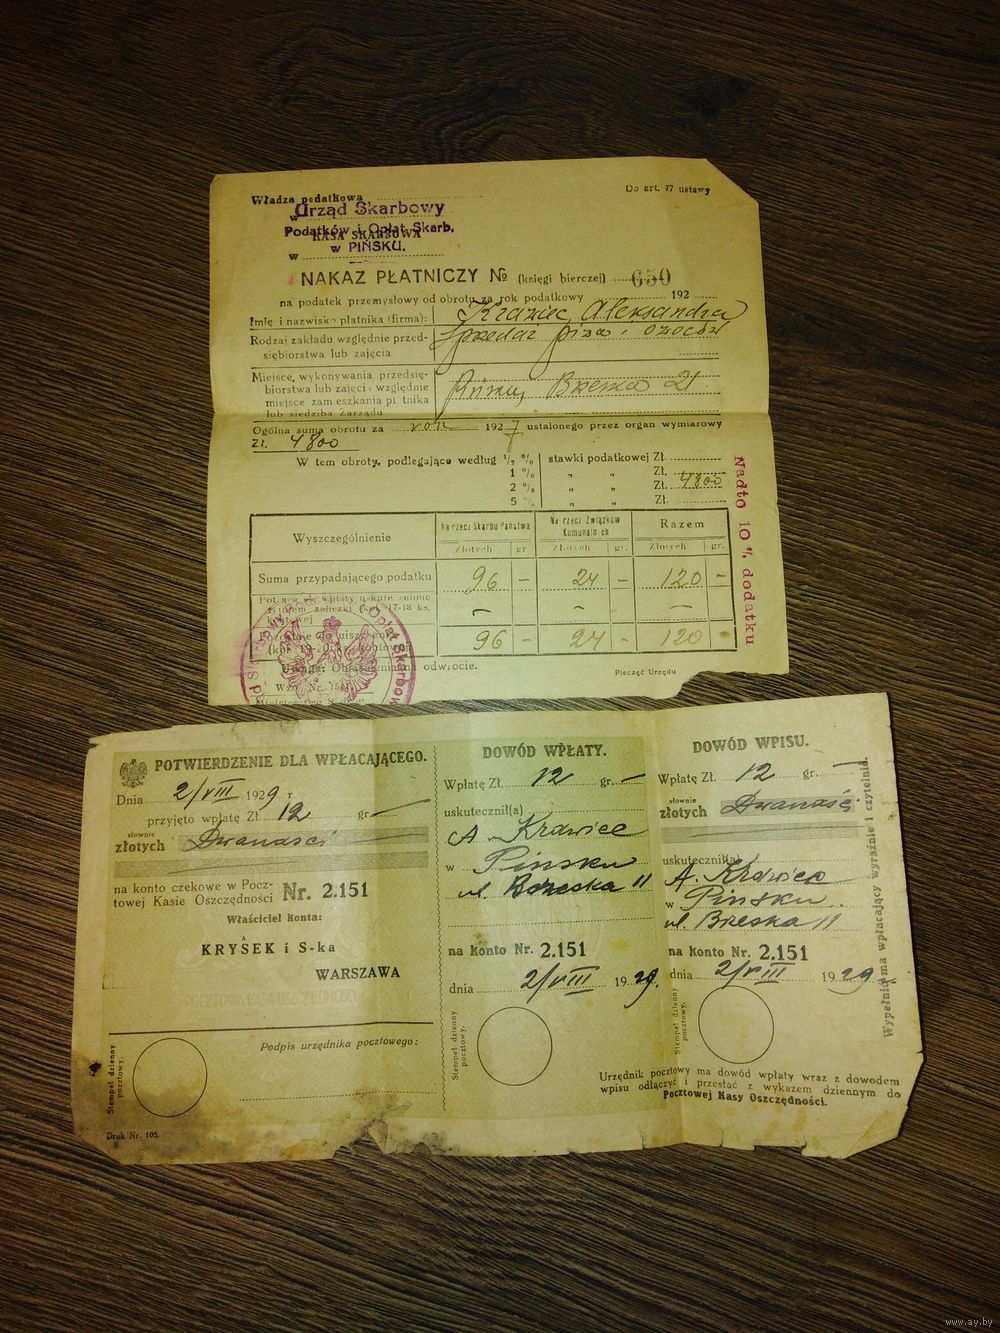 Władza podatkowa
Do art. 77 ustawy
w Urząd Skarbowy
Podatków i Opłat Skarb.
KASA SKARBOWA
w PIŃSKU.
w
NAKAZ PŁATNICZY № (księgi bierczej) 650
na podatek przemysłowy od obrotu za rok podatkowy 192
Imię i nazwisko płatnika (firma): Aleksandra
Rodzaj zakładu względnie przed-
siębiorstwa lub zajęcia
Miejsce, wykonywania przedsię-
biorstwa lub zajęci względnie
miejsce zam eszkania pł tnika
lub siedziba Zarządu
Brzeska 21
Ogólna suma obrotu za rok 1927 ustalonego przez organ wymiarowy
Zł. 4800
W tem obroty, podlegające według ½ % stawki podatkowej Zł.
1 % „ „ Zł.
2 % „ „ Zł. 4800
5 % „ „ Zł.
Nadto 10 % dodatku
Wyszczególnienie
Na rzecz Skarbu Państwa
Na rzecz Związków Komunaln ch
Razem
Złotych gr Złotych gr. Złotych gr.
Suma przypadającego podatku 96 – 24 – 120 –
– – –
96 – 24 – 120
Uwaga: Objaśnienia na odwrocie.
Pieczęć Urzędu
Opłat Skarbow
POTWIERDZENIE DLA WPŁACAJĄCEGO.
Dnia 2/VIII 1929 r.
przyjęto wpłatę Zł. 12 gr. –
słownie
złotych Dwanaści
na konto czekowe w Pocz-
towej Kasie Oszczędności Nr. 2.151
Właściciel Konta:
KRYSEK i S-ka
WARSZAWA
POCZTOWA KASA OSZCZĘDNOŚCI
Podpis urzędnika pocztowego:
Stempel dzienny
pocztowy.
Druk Nr. 105.
DOWÓD WPŁATY.
Wpłatę Zł. 12 gr. –
uskutecznił(a)
A. Krawiec
w Pinsku
ul. Brzeska 11
na konto Nr. 2.151
dnia 2/VIII 1929.
Stempel dzienny
pocztowy.
DOWÓD WPISU.
Wpłatę Zł. 12 gr. –
słownie
złotych Dwanaści
uskutecznił(a)
A. Krawiec
w Pinsku
ul. Brzeska 11
na konto Nr. 2.151
dnia 2/VIII 1929
Stempel dzienny
pocztowy.
Wypełnić ma wpłacający wyraźnie i czytelnie.
Urzędnik pocztowy ma dowód wpłaty wraz z dowodem
wpisu odłączyć i przesłać z wykazem dziennym do
Pocztowej Kasy Oszczędności.
www.ay.by